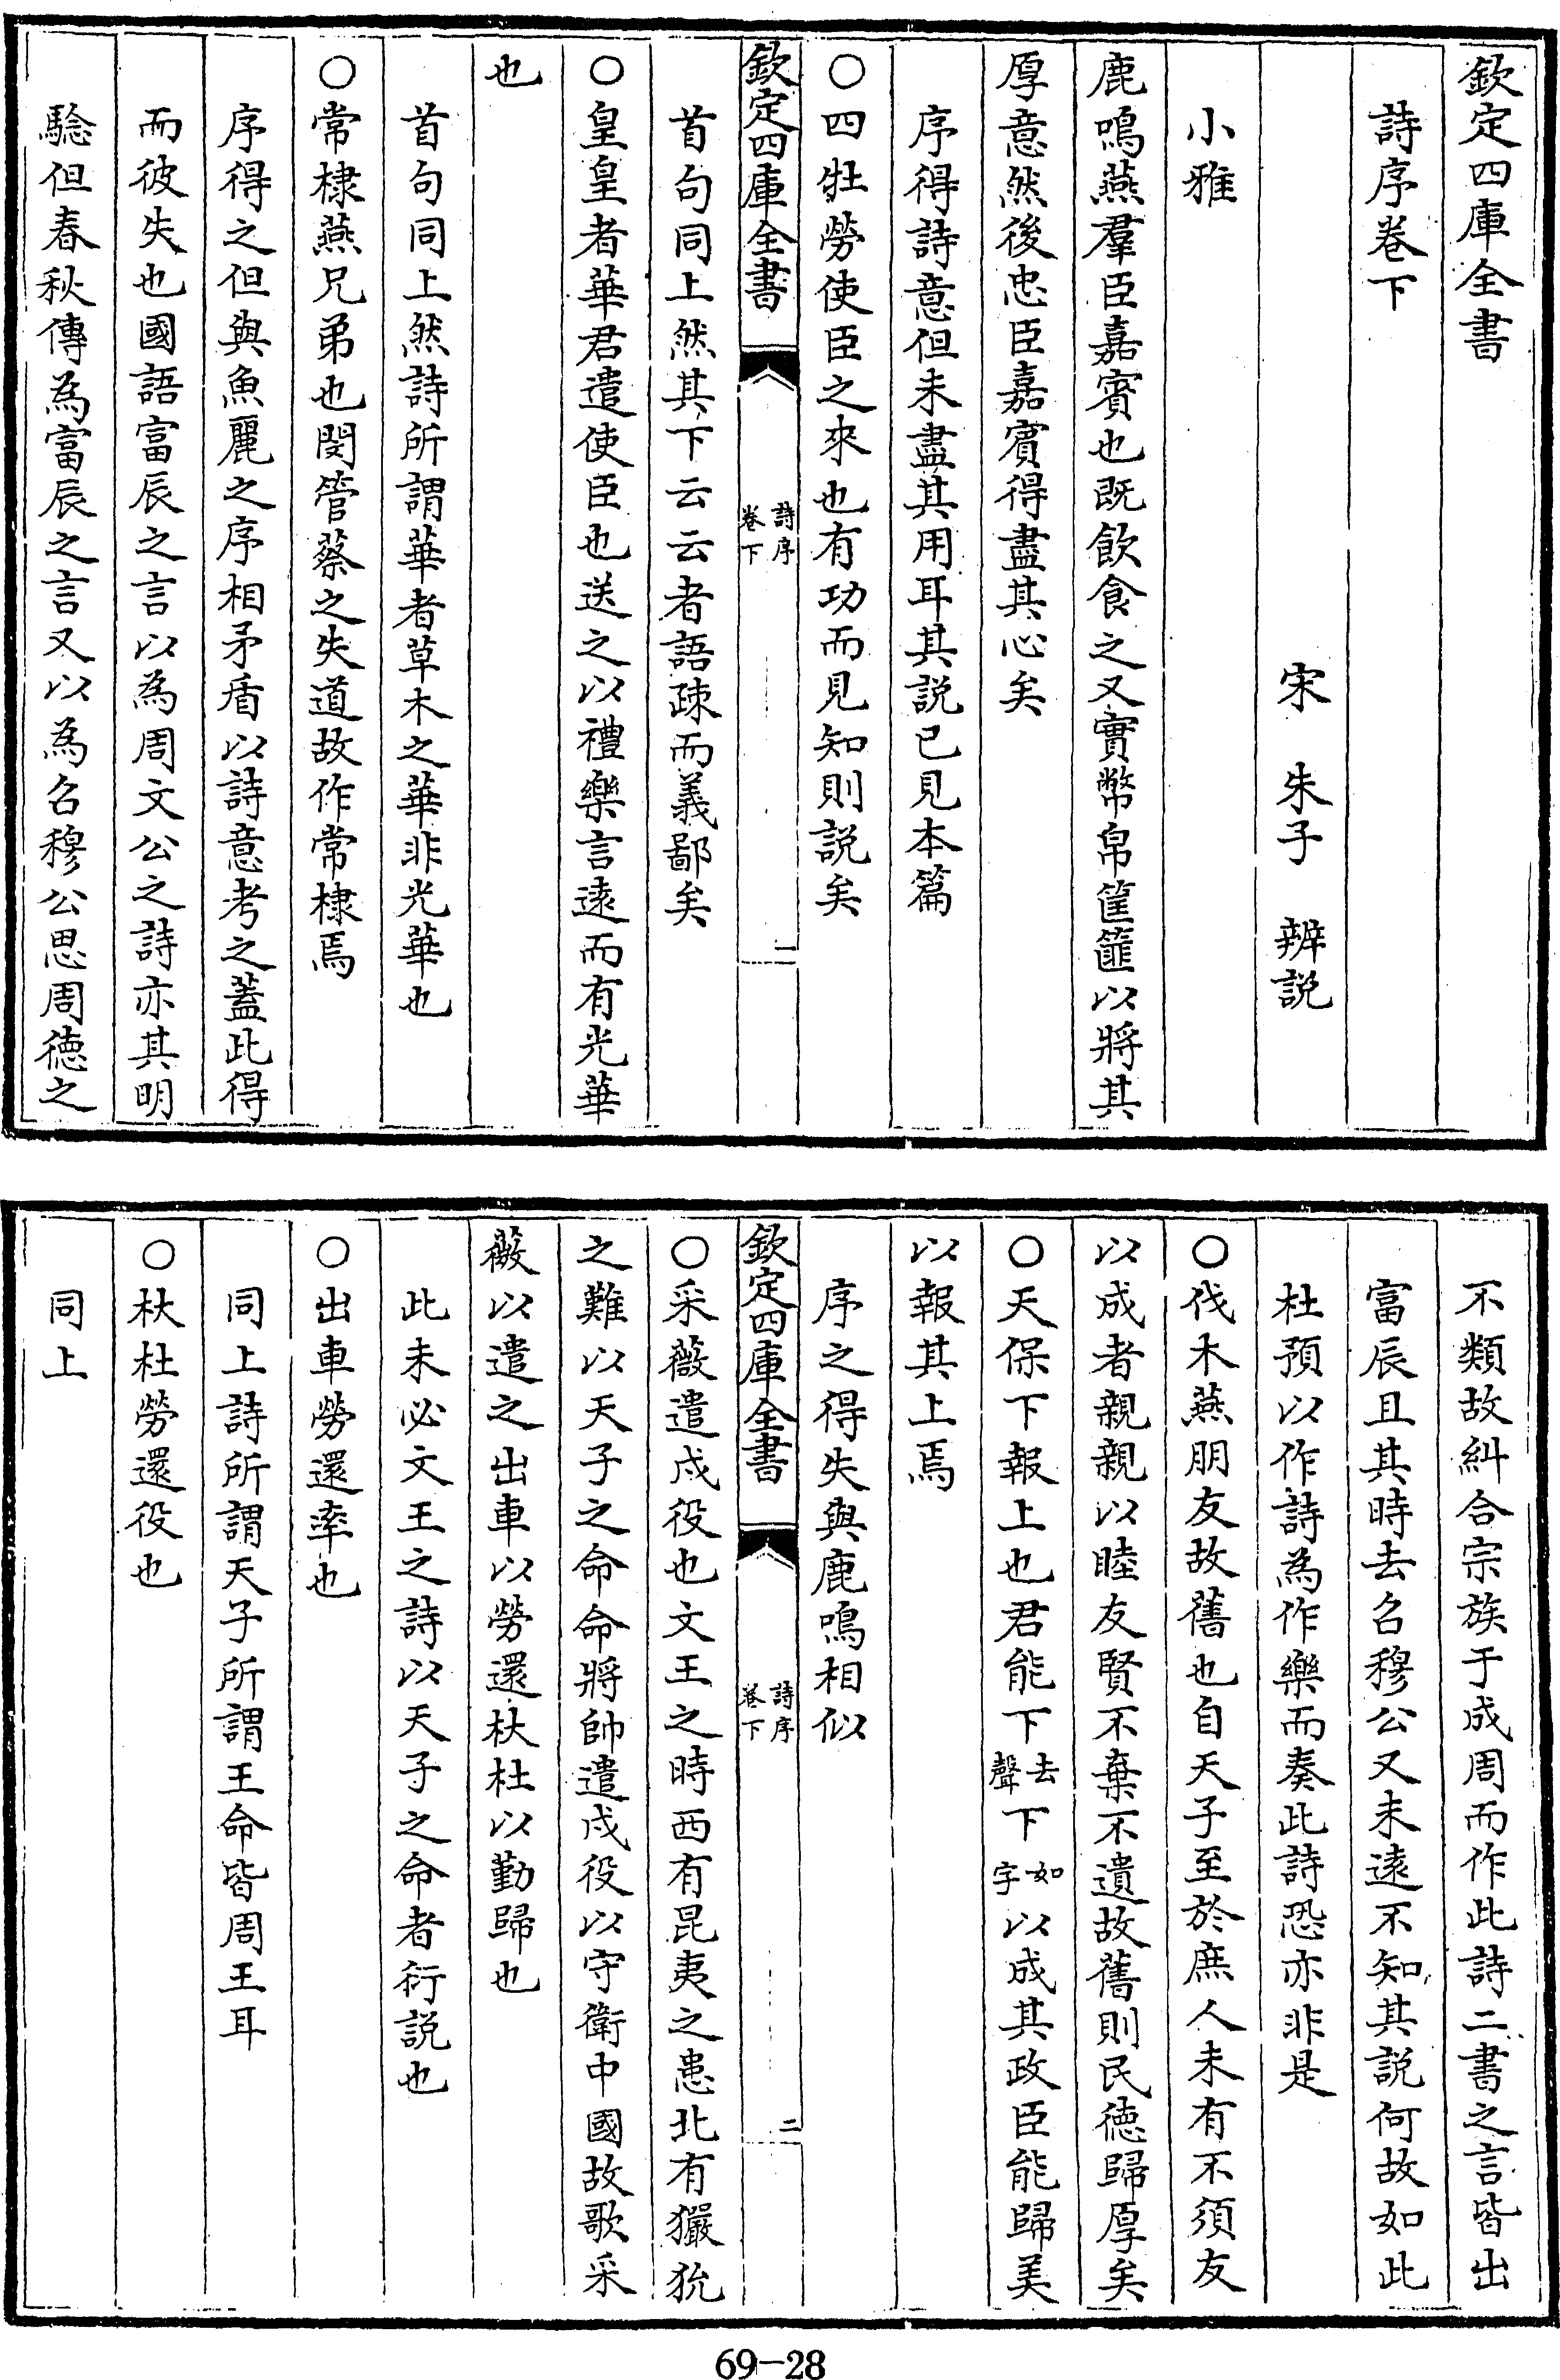 欽定四庫全書
詩序卷下
宋　朱子　辨説
小雅
鹿鳴燕羣臣嘉賓也既飲食之又實幣帛筐篚以將其
厚意然後忠臣嘉賓得盡其心矣
序得詩意但未盡其用耳其説已見本篇
○四牡勞使臣之來也有功而見知則説矣
欽定四庫全書　詩序卷下　一
首句同上然其下云云者語疎而義鄙矣
○皇皇者華君遣使臣也送之以禮樂言遠而有光華
也
首句同上然詩所謂華者草木之華非光華也
○常棣燕兄弟也閔管蔡之失道故作常棣焉
序得之但與魚麗之序相矛盾以詩意考之蓋此得
而彼失也國語富辰之言以為周文公之詩亦其明
騐但春秋傳為富辰之言又以為召穆公思周德之
不類故糾合宗族于成周而作此詩二書之言皆出
富辰且其時去召穆公又未遠不知其説何故如此
杜預以作詩為作樂而奏此詩恐亦非是
○伐木燕朋友故舊也自天子至於庶人未有不須友
以成者親親以睦友賢不棄不遺故舊則民德歸厚矣
○天保下報上也君能下去聲下如字以成其政臣能歸美
以報其上焉
序之得失與鹿鳴相似
欽定四庫全書　詩序卷下　二
○采薇遣戍役也文王之時西有昆夷之患北有玁狁
之難以天子之命命將帥遣戍役以守衛中國故歌采
薇以遣之出車以勞還杕杜以勤歸也
此未必文王之詩以天子之命者衍説也
○出車勞還率也
同上詩所謂天子所謂王命皆周王耳
○杕杜勞還役也
同上
69-28